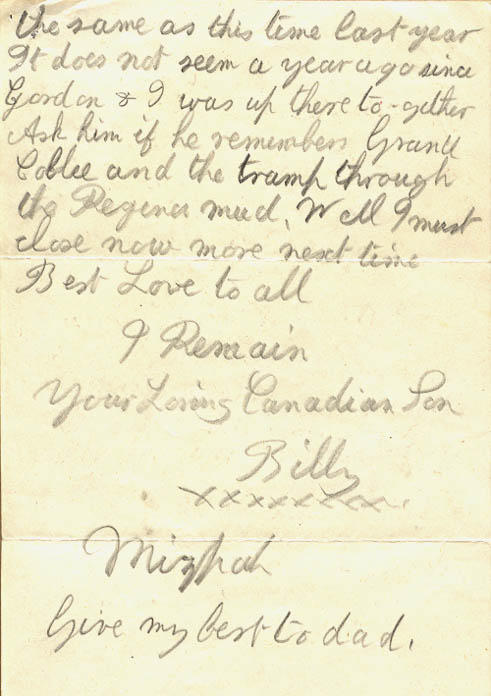 the same as this time last year
It does not seem a year ago since
Gordon & I was up there to-gether
Ask him if he remembers Grand
and the tramp through
the Regina mud, Well I must
close now more next time
Best Love to all
I Remain
Your Loving Canadian Son
Billy
xxxxxxxx.
Mizpah
Give my best to dad.